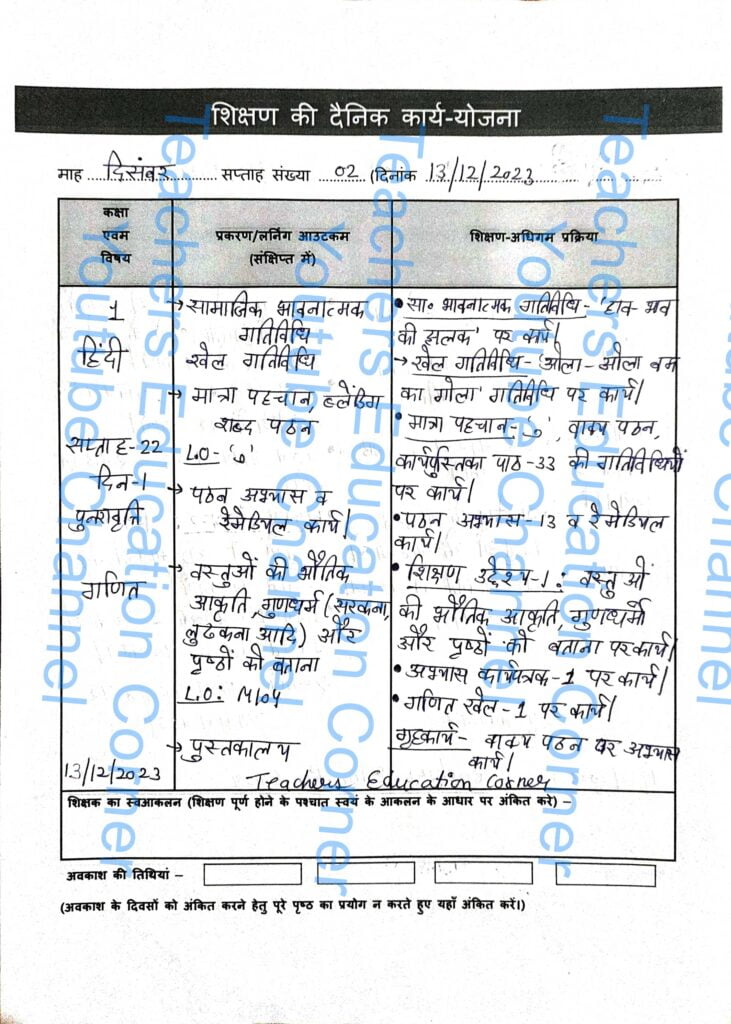 शिक्षण की दैनिक कार्य-योजना
माह दिसंबर सप्ताह संख्या 02 (दिनांक 13/12/2023
कक्षा
एवम
विषय
प्रकरण/लर्निंग आउटकम
(संक्षिप्त में)
शिक्षण-अधिगम प्रक्रिया
1
हिंदी
सप्ताह-22
दिन-1
पुनरावृत्ति
गणित
13/12/2023
→ सामाजिक भावनात्मक
गतिविधि
खेल गतिविधि
→ मात्रा पहचान, ब्लेंडिंग
शब्द पठन
L.O- 'ो'
→ पठन अभ्यास व
रेमेडियल कार्य।
→ वस्तुओं की भौतिक
आकृति, गुणधर्म (सरकना,
लुढकना आदि) और
पृष्ठों को बताना
L.O: M104
→ पुस्तकालय
• सा० भावनात्मक गतिविधि- 'हाव-भाव
की झलक' पर कार्य।
→ खेल गतिविधि- 'ओला-भोला बम
का गोला' गतिविधि पर कार्य।
• मात्रा पहचान- 'ो', वाक्य पठन,
कार्यपुस्तिका पाठ-33 की गतिविधियों
पर कार्य।
• पठन अभ्यास-13 व रेमेडियल
कार्य।
• शिक्षण उद्देश्य-1: वस्तुओं
की भौतिक आकृति, गुणधर्मो
और पृष्ठों को बताना पर कार्य।
• अभ्यास कार्यपत्रक-1 पर कार्य।
• गणित खेल-1 पर कार्य।
गृहकार्य- वाक्य पठन पर अभ्यास
कार्य।
Teachers Education Corner
शिक्षक का स्वआकलन (शिक्षण पूर्ण होने के पश्चात स्वयं के आकलन के आधार पर अंकित करे) –
अवकाश की तिथियां –
(अवकाश के दिवसों को अंकित करने हेतु पूरे पृष्ठ का प्रयोग न करते हुए यहाँ अंकित करें।)
Teachers Education Corner
Youtube Channel
Teachers Education Corner
Youtube Channel
Teachers Education Corner
Youtube Channel